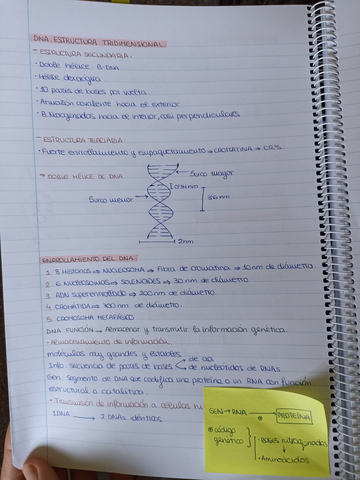 DNA. ESTRUCTURA TRIDIMENSIONAL
- ESTRUCTURA SECUNDARIA.
· Doble hélice B-DNA
· Hélice dextrógira
· 10 pares de bases por vuelta
· Armazón covalente hacia el exterior
· B. Nitrogenadas hacia el interior, casi perpendiculares
- ESTRUCTURA TERCIARIA
· Fuerte enrollamiento y empaquetamiento → CROMATINA → CRS
→ DOBLE HÉLICE DE DNA
Surco mayor
0,34 nm
Surco menor
3,6 nm
2nm
ENROLLAMIENTO DEL DNA
1. 8 HISTONAS → NUCLEOSOMA → Fibra de cromatina → 10 nm de diámetro.
2. 6 NUCLEOSOMAS → SOLENOIDES → 30 nm de diámetro
3. ADN superenrollado → 200 nm de diámetro
4. CROMÁTIDA → 700 nm de diámetro.
5. CROMOSOMA METAFÁSICO
DNA FUNCIÓN → Almacenar y transmitir la información genética.
· Almacenamiento de información.
moléculas muy grandes y estables
Info: secuencia de pares de bases
de aa
de nucleótidos de RNAs
Gen: segmento de DNA que codifica una proteína o un RNA con función
estructural o catalítica.
· Transmisión de información a células
1 DNA → 2 DNAs idénticos
GEN → RNA → PROTEÍNA
código
genético
BASES nitrogenadas
Aminoácidos